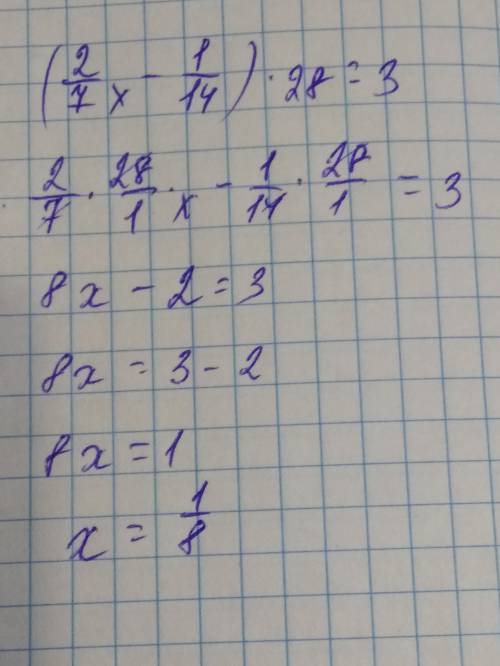 (2/7 x - 1/14) · 28 = 3
2/7 · 28/1 · x - 1/14 · 28/1 = 3
8x - 2 = 3
8x = 3 - 2
8x = 1
x = 1/8